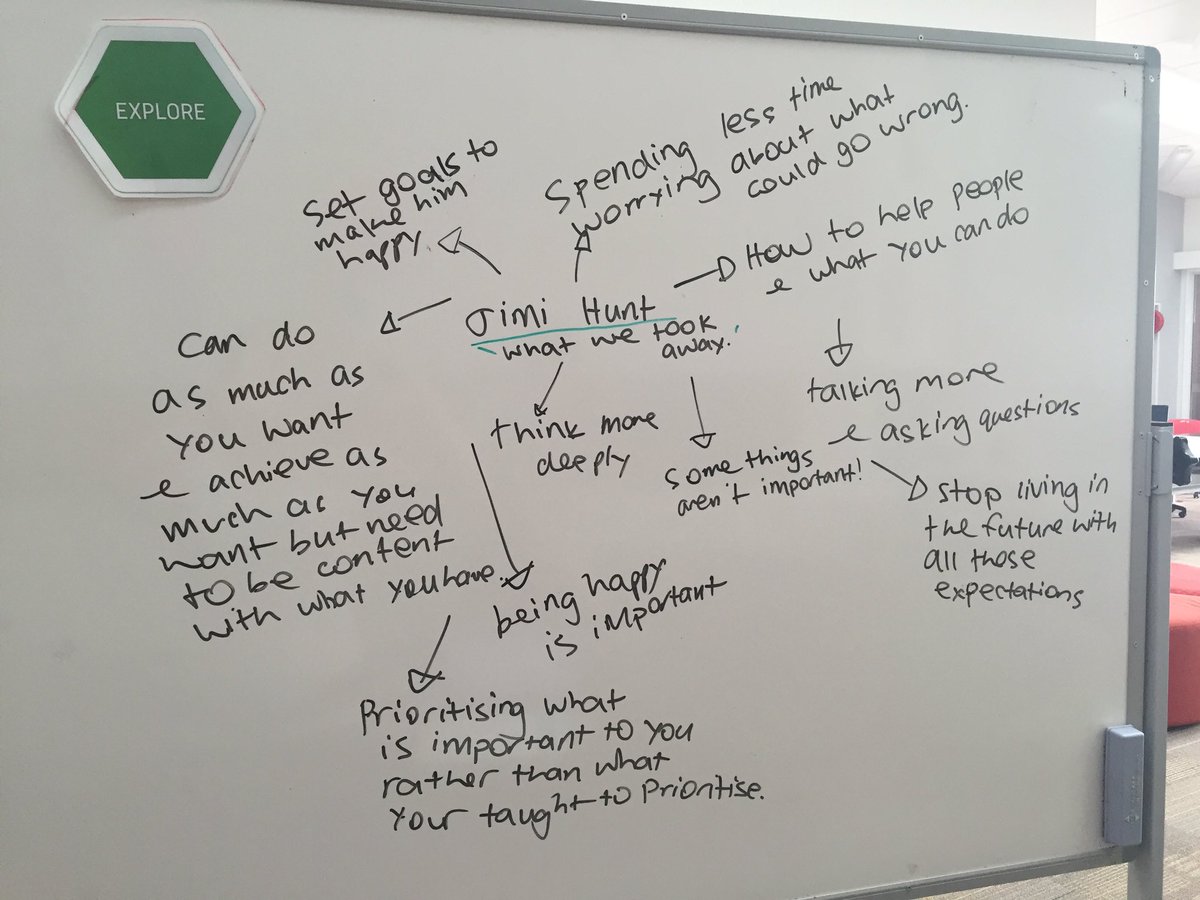 EXPLORE
Set goals to
make him
happy.
Spending less time
worrying about what
could go wrong.
How to help people
& what you can do
Jimi Hunt
what we took
away.
Can do
as much as
you want
& achieve as
much as you
want but need
to be content
with what you have.
think more
deeply
some things
aren't important!
talking more
& asking questions
stop living in
the future with
all those
expectations
being happy
is important
Prioritising what
is important to you
rather than what
your taught to Prioritise.